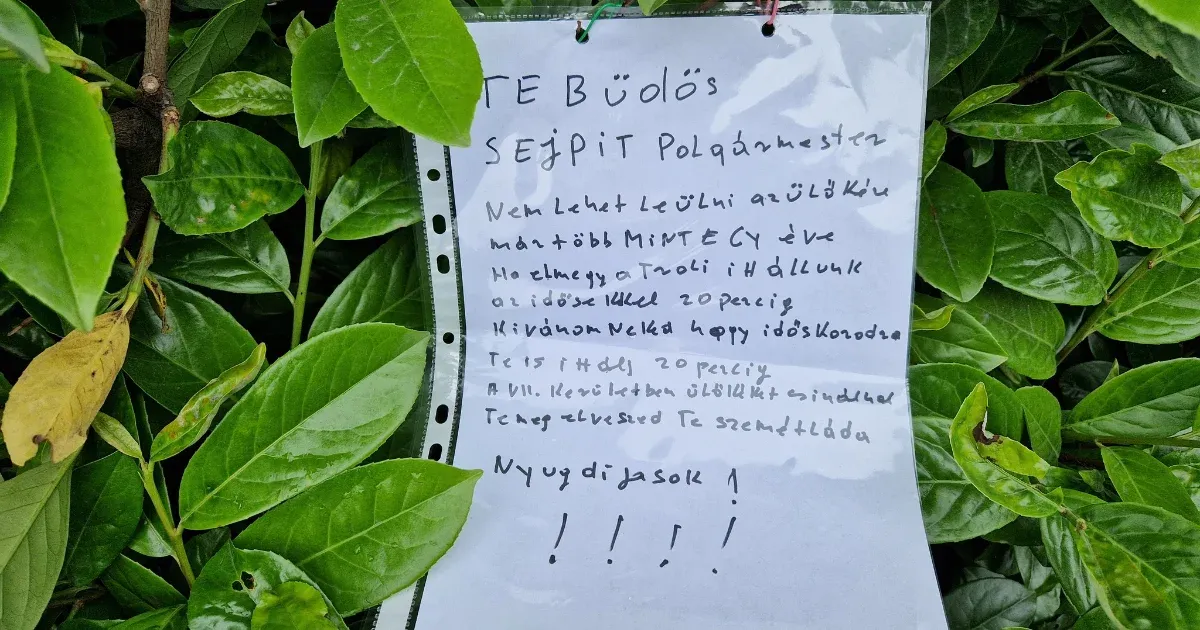 TE BÜdös
SEJPiT Polgármester
Nem Lehet leülni az ülőkére
már több MiNT EGY éve
Ha elmegy a Troli itt állunk
az idősekkel 20 percig
Kívánom Neked hogy időskorodra
Te is itt állj 20 percig
A VII. Kerületben ülőkéket csinálnak
Te meg elveszed Te szemétláda
Nyugdíjasok !
! ! ! !